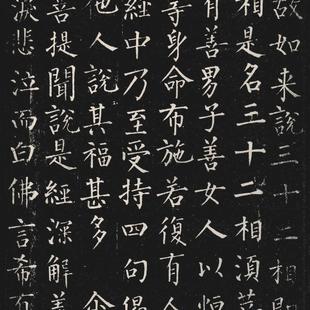 故如来說三十二相即
相是名三十二相須菩
有善男子善女人以恒
等身命布施若復有人
經中乃至受持四句偈
他人說其福甚多 尒
菩提聞說是經深解義
淚悲泣而白佛言希有